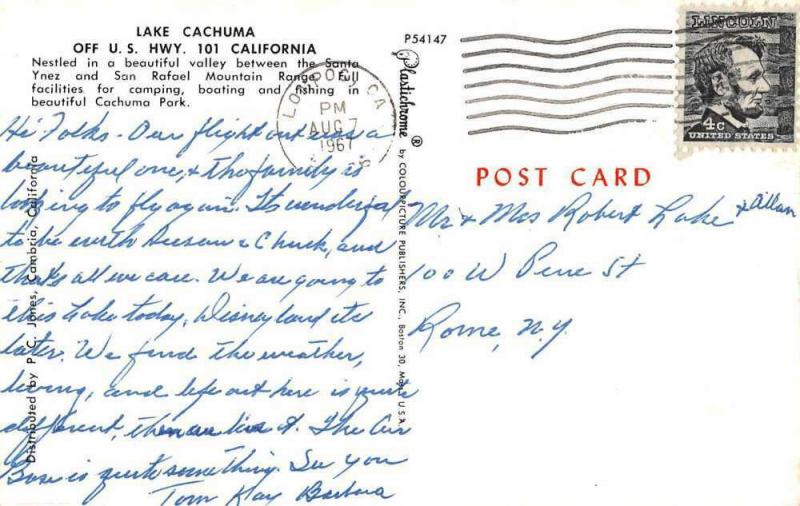 LAKE CACHUMA
OFF U. S. HWY. 101 CALIFORNIA
Nestled in a beautiful valley between the Santa
Ynez and San Rafael Mountain Range. Full
facilities for camping, boating and fishing in
beautiful Cachuma Park.
Hi Folks - Our flight out was a
beautiful one, & the family is
hoping to fly again. Its wonderful
to be with Susan & Chuck, and
that's all we care. We are going to
this Lake today, Disneyland etc
later. We find the weather,
living, and life out here is quite
different, live it. The Air
Base is quite something. See you
Tom Kay Barbara
Distributed by P. C. Jones, Cambria, California
P54147
Plastichrome ® by COLOURPICTURE PUBLISHERS, INC., Boston 30, Mass. U.S.A.
LOMPOC, CA
PM
AUG 7
1967
LINCOLN
4c
UNITED STATES
POST CARD
Mr & Mrs Robert Lake & Allan
100 W Pine St
Rome, N.Y.